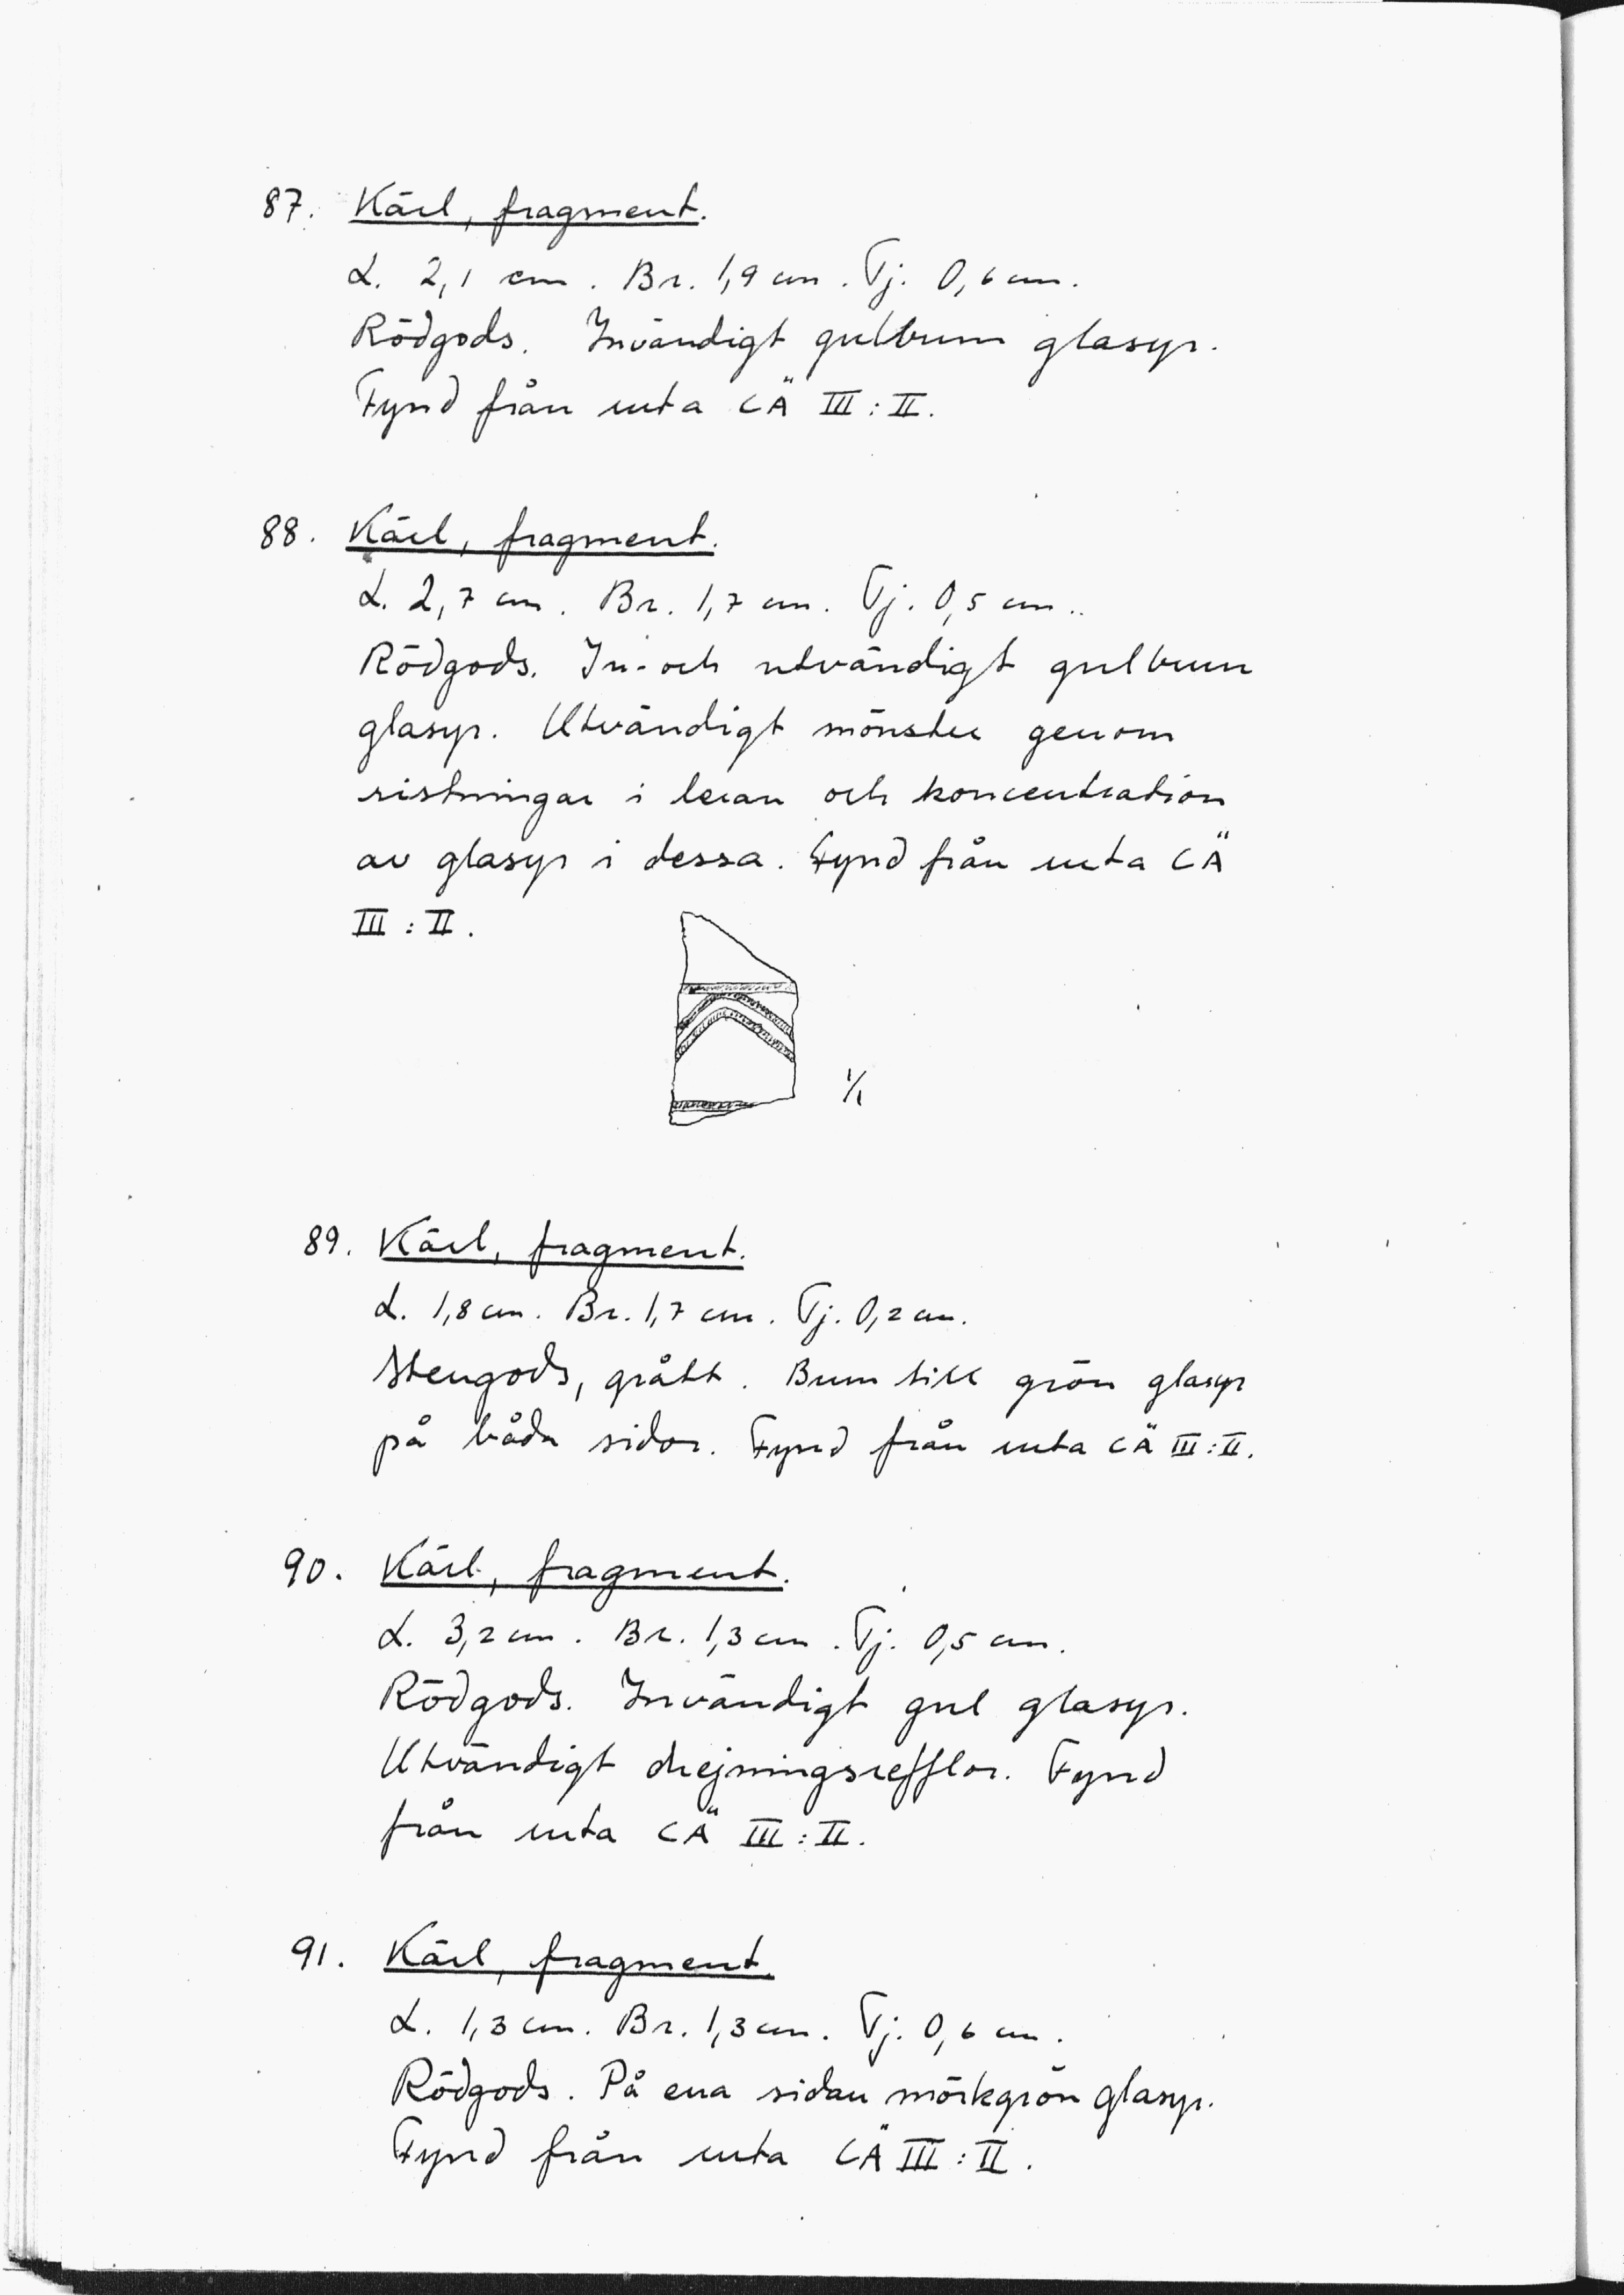 87. Kärl, fragment.
L. 2,1 cm. Br. 1,9 cm. Tj. 0,6 cm.
Rödgods. Invändigt gulbrun glasyr.
Fynd från ruta CÄ III:II.
88. Kärl, fragment.
L. 2,7 cm. Br. 1,7 cm. Tj. 0,5 cm.
Rödgods. In- och utvändigt gulbrun
glasyr. Utvändigt mönster genom
ristningar i leran och koncentration
av glasyr i dessa. Fynd från ruta CÄ
III:II.
1/1
89. Kärl, fragment.
L. 1,8 cm. Br. 1,7 cm. Tj. 0,2 cm.
Stengods, grått. Brun till grön glasyr
på båda sidor. Fynd från ruta CÄ III:II.
90. Kärl, fragment.
L. 3,2 cm. Br. 1,3 cm. Tj. 0,5 cm.
Rödgods. Invändigt gul glasyr.
Utvändigt drejningsrefflor. Fynd
från ruta CÄ III:II.
91. Kärl, fragment.
L. 1,3 cm. Br. 1,3 cm. Tj. 0,6 cm.
Rödgods. På ena sidan mörkgrön glasyr.
Fynd från ruta CÄ III:II.